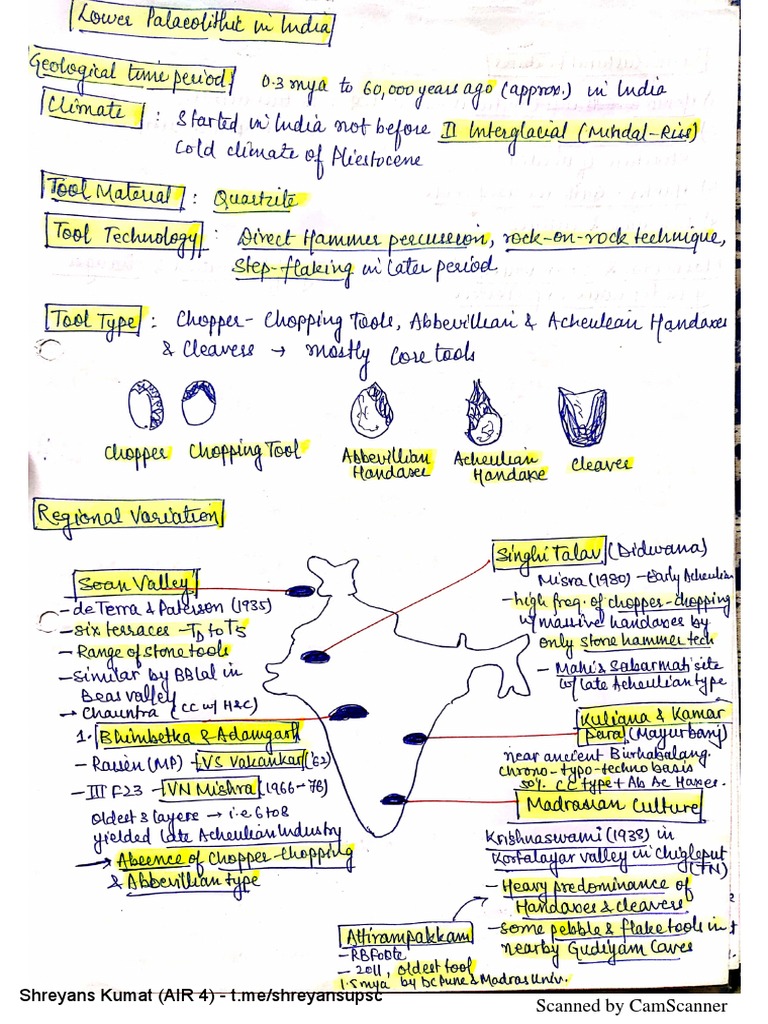 Lower Palaeolithic in India
Geological time period 0.3 mya to 60,000 years ago (approx.) in India
Climate : Started in India not before II Interglacial (Mindal-Riss)
Cold climate of Pliestocene
Tool Material : Quartzite
Tool Technology : Direct Hammer percussion, rock-on-rock technique,
Step-flaking in later period
Tool Type : Chopper - Chopping Tools, Abbevillian & Acheulean Handaxes
& Cleavers → mostly Core tools
Chopper Chopping Tool Abbevillian Handaxes Acheulian Handaxe Cleaver
Regional Variation
Soan Valley
- de Terra & Paterson (1935)
- six terraces - TD to T5
- Range of stone tools
- Similar by BB lal in
Beas valley
→ Chauntra (CC w/ H&C)
1. Bhimbetka & Adamgarh
- Raisen (MP) - VS Wakankar ('62)
- III F23 - VN Mishra (1966-76)
oldest 3 layers → i.e 6 to 8
yielded late Acheulian Industry
→ Absence of Chopper-Chopping
& Abbevillian type
Singhi Talav (Didwana)
Misra (1980) - Early Acheulian
- high freq. of chopper-chopping
w/ massive handaxes by
only stone hammer tech
- Mahi & Sabarmati site
w/ late Acheulian type
Kuliana & Kamar
para (Mayurbanj)
near ancient Burhabalang
chrono-typo-techno basis
50% CC type + Ab Ac Haxes.
Madrasian Culture
Krishnaswami (1938) in
Kortalayar valley in Chigleput
(TN)
- Heavy predominance of
Handaxes & cleavers
- some pebble & flake tools in
nearby Gudiyam Caves
Attirampakkam
- RB Foote
- 2011, oldest tool
1.5 mya by DC Pune & Madras Univ.
Shreyans Kumat (AIR 4) - t.me/shreyansupsc
Scanned by CamScanner